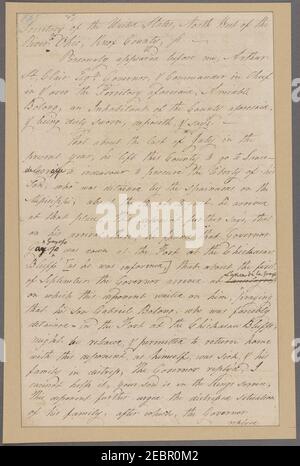 Territory of the United States, North West of the
River Ohio, Knox County, ss.
Personally appeared before me, Arthur
St. Clair Esqr. Governor, & Commander in Chief
in & over the Territory aforesaid, Amable
Bolong, an Inhabitant of the County aforesaid,
& being duly sworn, deposeth & saith
That about the last of July, in the
present year, he left this County to go to
to endeavour to procure the liberty of his
Son, who was detained by the Spaniards on the
Missisippi; at
at that place. This deponent further says, that
on his arrival there, he found that Governor
Gayoso was down at the Fort at the Chickasaw
Bluffs [as he was informed,] that about the first
of September the Governor arrived at
on which this deponent waited on him, praying
that his Son Gabriel Bolong, who was forcibly
detained in the Fort at the Chickasaw Bluffs
might be released, & permitted to return home
with this deponent, as himself was sick, & his
family in distress, the Governor replied I
cannot help it, your Son is in the Kings Service,
this deponent further urged the distressed situation
of his family, after which, the Governor
replied
alamy
Image ID: 2EBR0M2
www.alamy.com